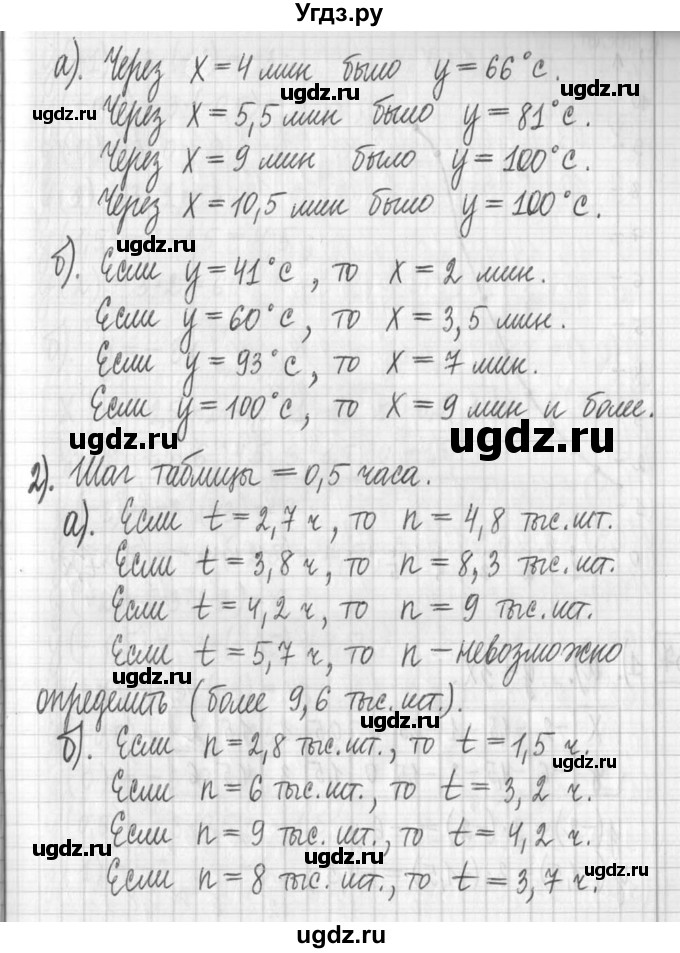 Угдз.ру
а). Через x = 4 мин было y = 66°C.
ugdz.ru
ugdz.ru
Через x = 5,5 мин было y = 81°C.
Через x = 9 мин было y = 100°C.
Через x = 10,5 мин было y = 100°C.
ugdz.ru
ugdz.ru
б). Если y = 41°C, то x = 2 мин.
Если y = 60°C, то x = 3,5 мин.
Если y = 93°C, то x = 7 мин.
Если y = 100°C, то x = 9 мин и более.
ugdz.ru
ugdz.ru
2). Шаг таблицы = 0,5 часа.
а). Если t = 2,7 ч, то n = 4,8 тыс.шт.
Если t = 3,8 ч, то n = 8,3 тыс.шт.
Если t = 4,2 ч, то n = 9 тыс.шт.
ugdz.ru
Если t = 5,7 ч, то n - невозможно
ugdz.ru
определить (более 9,6 тыс.шт.).
ugdz.ru
б). Если n = 2,8 тыс.шт., то t = 1,5 ч.
ugdz.ru
Если n = 6 тыс.шт., то t = 3,2 ч.
Если n = 9 тыс. шт., то t = 4,2 ч.
ugdz.ru
ugdz.ru
Если n = 8 тыс. шт., то t = 3,7 ч.
ugdz.ru
ugdz.ru